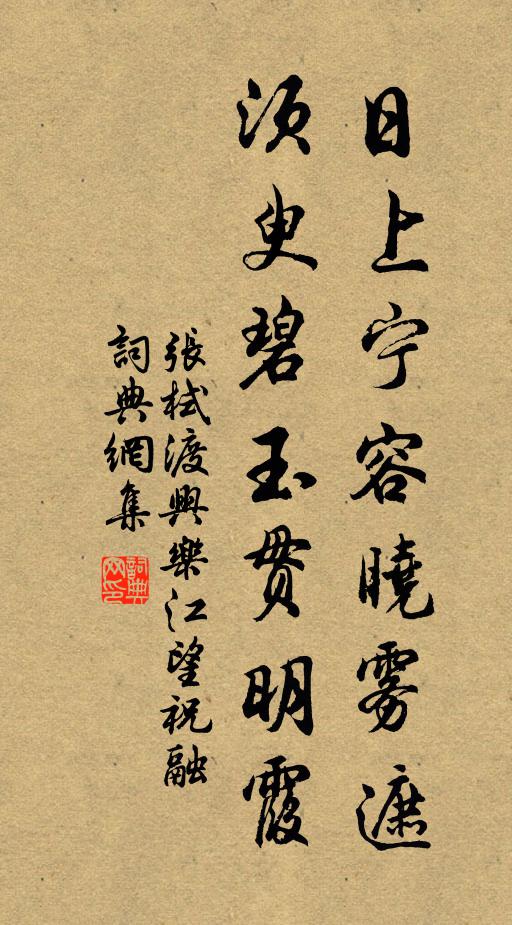 日上宁容曉雾遮
須叟碧玉贯明霞
張栻渡興樂江望祝融
詞典網集
詞典網印